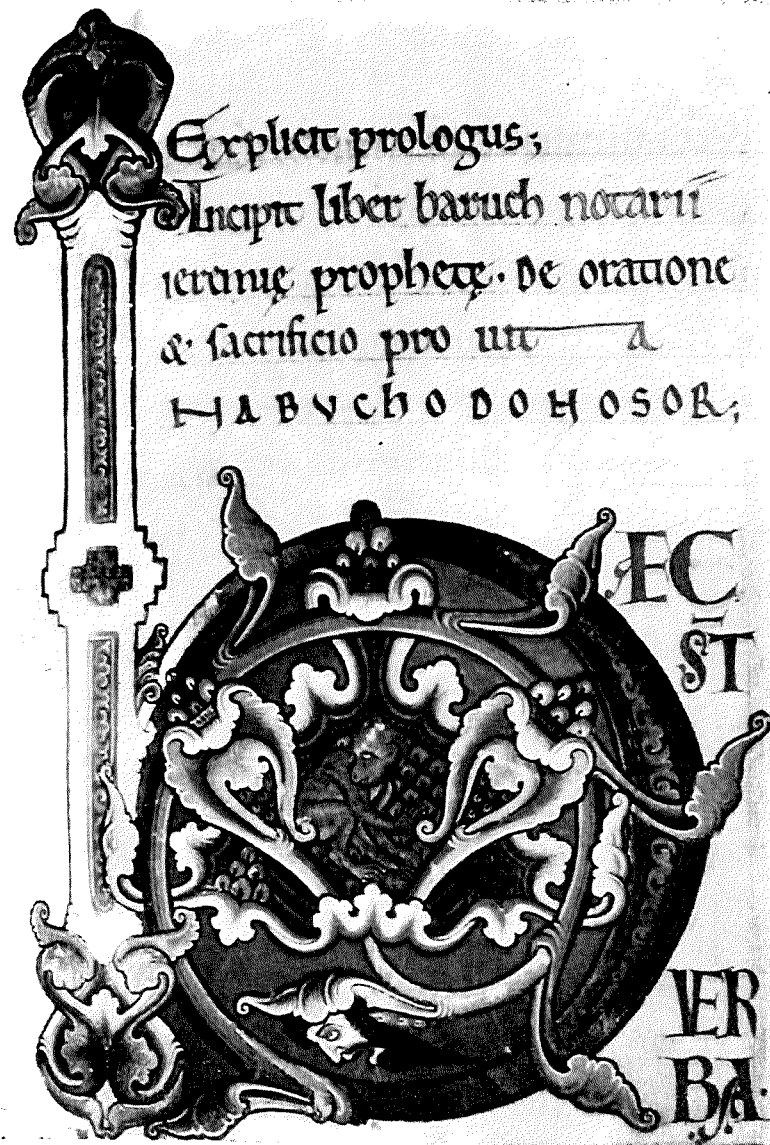 Explicit prologus;
Incipit liber baruch notarii
ieremię prophetę. De oratione
& sacrificio pro uita
NABUCHODONOSOR;
ÆC
S̄T
VER
BA.